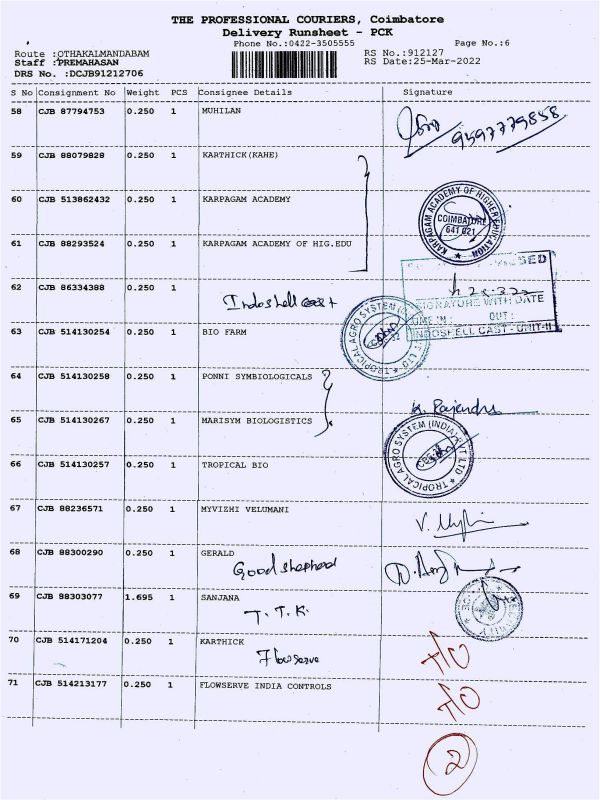 THE PROFESSIONAL COURIERS, Coimbatore
Delivery Runsheet - PCK
Phone No.:0422-3505555 Page No.:6
Route :OTHAKALMANDABAM RS No.:912127
Staff :PREMAHASAN RS Date:25-Mar-2022
DRS No. :DCJB91212706
S No Consignment No Weight PCS Consignee Details Signature
58 CJB 87794753 0.250 1 MUHILAN 9597779858
59 CJB 88079828 0.250 1 KARTHICK(KAHE)
60 CJB 513862432 0.250 1 KARPAGAM ACADEMY
KARPAGAM ACADEMY OF HIGHER EDUCATION
COIMBATORE
641 021
61 CJB 88293524 0.250 1 KARPAGAM ACADEMY OF HIG.EDU
62 CJB 86334388 0.250 1
Indoshell cast
SIGNATURE WITH DATE
TIME IN : OUT :
INDOSHELL CAST - UNIT-II
63 CJB 514130254 0.250 1 BIO FARM
TROPICAL AGRO SYSTEM LTD
64 CJB 514130258 0.250 1 PONNI SYMBIOLOGICALS
K. Rajendra
65 CJB 514130267 0.250 1 MARISYM BIOLOGISTICS
TROPICAL AGRO SYSTEM (INDIA) PVT LTD
66 CJB 514130257 0.250 1 TROPICAL BIO
67 CJB 88236571 0.250 1 MYVIZHI VELUMANI
68 CJB 88300290 0.250 1 GERALD
Good shepherd
69 CJB 88303077 1.695 1 SANJANA
T.T.K.
70 CJB 514171204 0.250 1 KARTHICK
Flowserve
71 CJB 514213177 0.250 1 FLOWSERVE INDIA CONTROLS
2